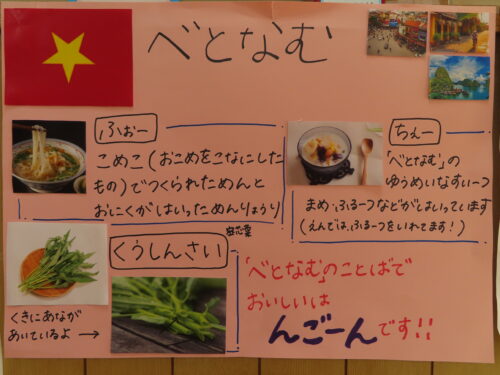 べとなむ
ふぉー
こめこ(おこめをこなにした
もの)でつくられためんと
おにくがはいっためんりょうり
ちぇー
「べとなむ」の
ゆうめいなすいーつ
まめ、ふるーつなどがはいっています
(えんでは、ふるーつをいれてます!)
くうしんさい
くきにあなが
あいているよ →
「べとなむ」のことばで
おいしいは
んごーんです!!